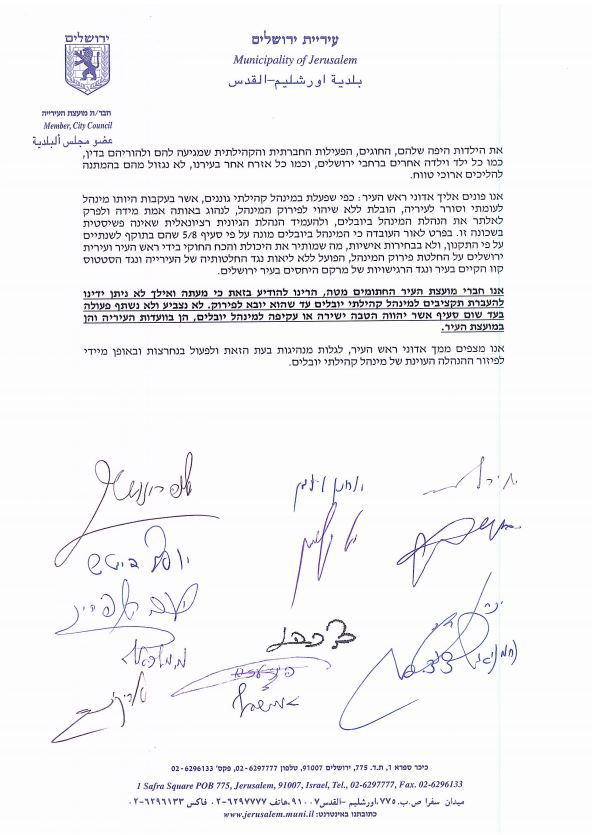 ירושלים
עיריית ירושלים
Municipality of Jerusalem
بلدية اورشليم-القدس
חבר/ת מועצת העירייה
Member, City Council
عضو مجلس البلدية
את הילדות היפה שלהם, החוגים, הפעילות החברתית והקהילתית שמגיעה להם ולהוריהם בדין,
כמו כל ילד וילדה אחרים ברחבי ירושלים, וכמו כל אזרח אחר בעירנו, לא נגזול מהם בהמתנה
להליכים ארוכי טווח.
אנו פונים אליך אדוני ראש העיר: כפי שפעלת במינהל קהילתי גוננים, אשר בעקבות היותו מינהל
לעומתי וסורר לעיריה, הובלת ללא שיהוי לפירוק המינהל, לנהוג באותה אמת מידה ולפרק
לאלתר את הנהלת המינהל ביובלים, ולהעמיד הנהלת הגיונית רציונאלית שאינה פשיסטית
בשכונה זו. בפרט לאור העובדה כי המינהל ביובלים מונה על פי סעיף 5/8 שהם בתוקף לשנתיים
על פי התקנון, ולא בבחירות אישיות, מה שמותיר את היכולת והכח החוקי בידי ראש העיר ועירית
ירושלים על החלטת פירוק המינהל, הפועל ללא ליאות נגד החלטותיה של העירייה ונגד הסטטוס
קוו הקיים בעיר ונגד הרגישויות של מרקם היחסים בעיר ירושלים.
אנו חברי מועצת העיר החתומים מטה, הרינו להודיע בזאת כי מעתה ואילך לא ניתן ידינו
להעברת תקציבים למינהל קהילתי יובלים עד שהוא יובא לפירוק. לא נצביע ולא נשתף פעולה
בעד שום סעיף אשר יהווה הטבה ישירה או עקיפה למינהל יובלים, הן בוועדות העיריה והן
במועצת העיר.
אנו מצפים ממך אדוני ראש העיר, לגלות מנהיגות בעת הזאת ולפעול בנחרצות ובאופן מיידי
לפיזור ההנהלה העוינת של מינהל קהילתי יובלים.
יוסף דייטש
כיכר ספרא 1, ת.ד. 775, ירושלים 91007, טלפון 02-6297777, פקס' 02-6296133
1 Safra Square POB 775, Jerusalem, 91007, Israel, Tel., 02-6297777, Fax. 02-6296133
ميدان سفرا ص.ب. ٧٧٥، اورشليم-القدس ٩١٠٠٧، هاتف ٦٢٩٧٧٧٧-٠٢ فاكس ٦٢٩٦١٣٣-٠٢
כתובתנו באינטרנט: www.jerusalem.muni.il